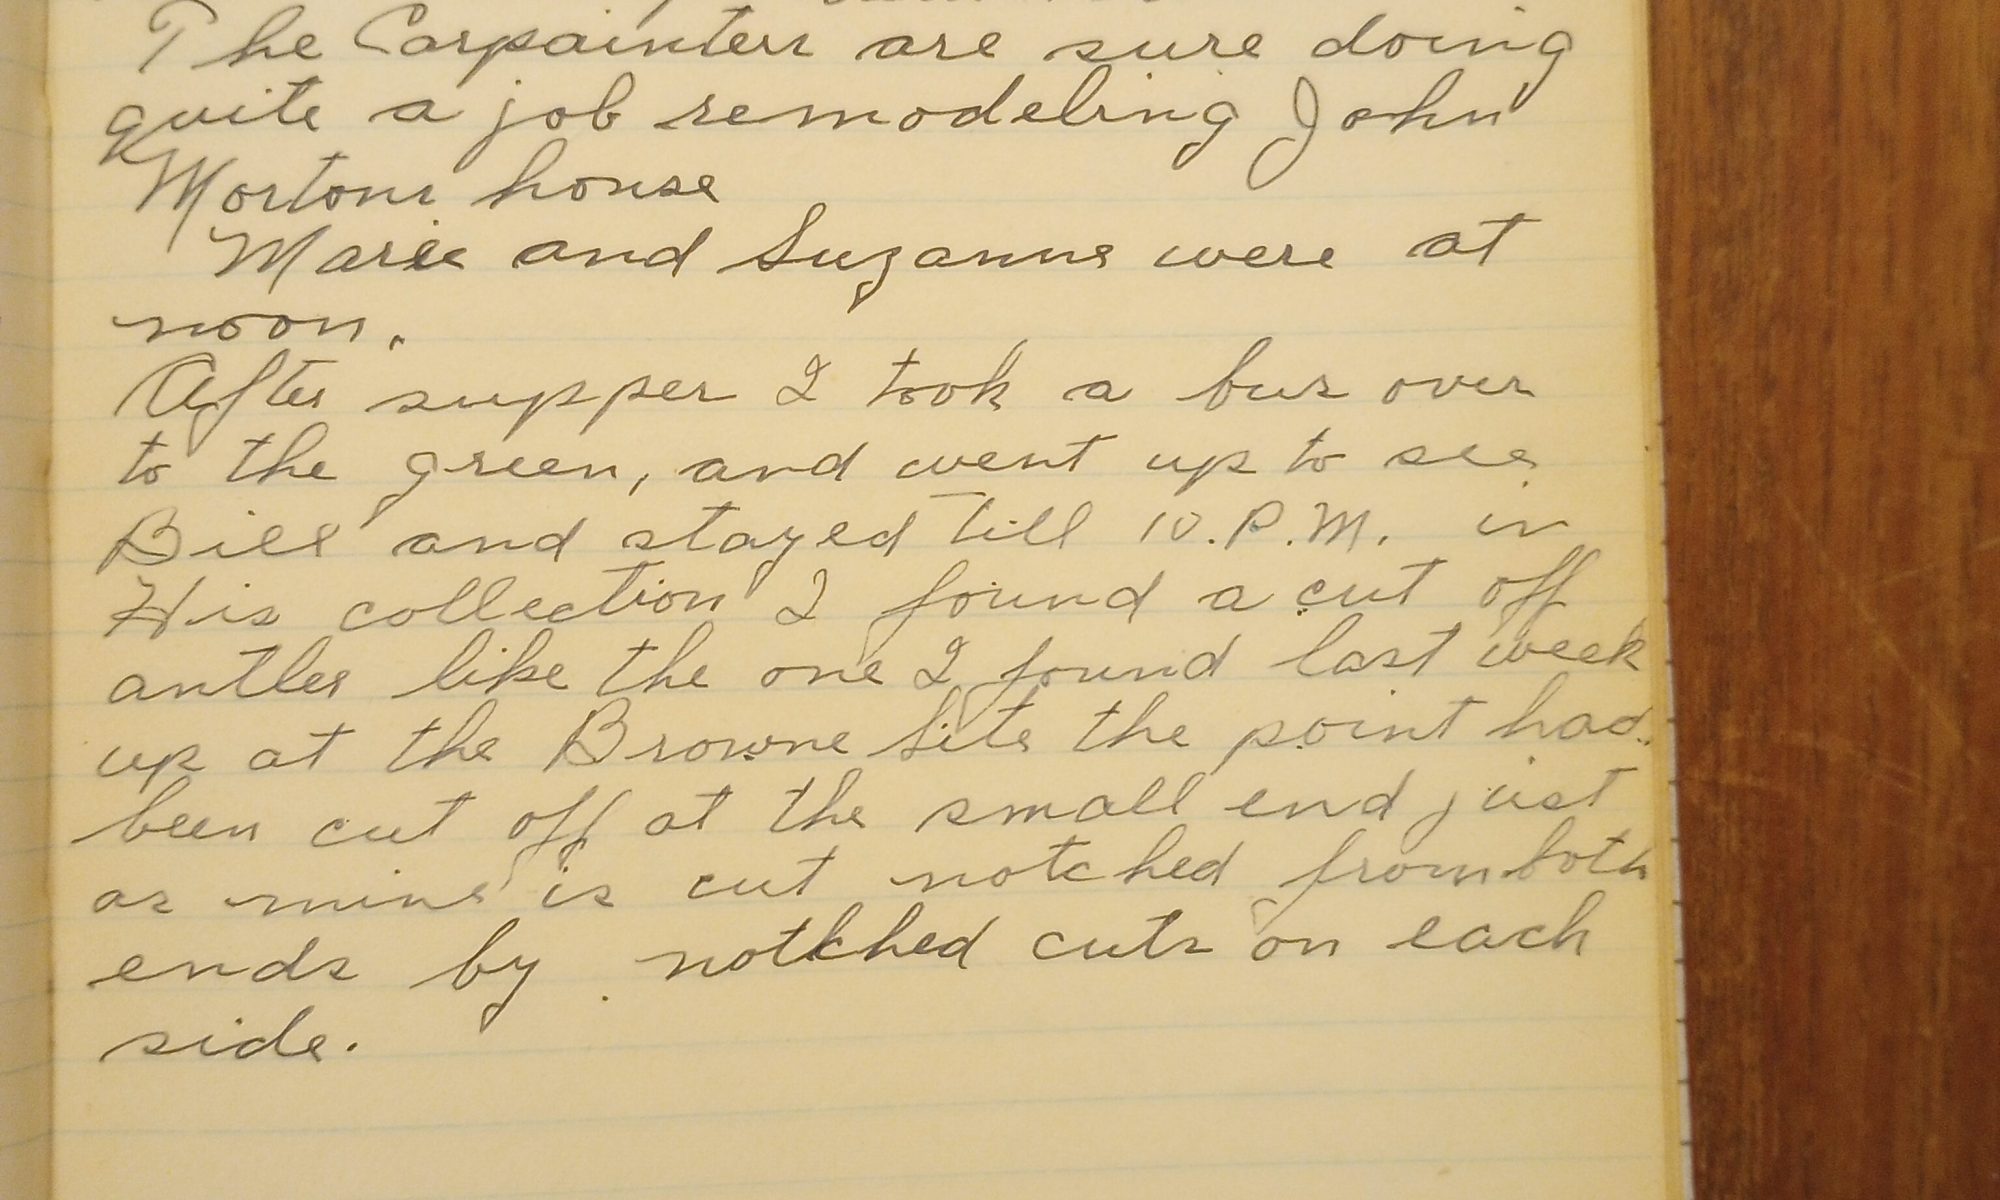 The Carpainters are sure doing
quite a job remodeling John
Mortons house
Marie and Suzanne were at
noon.
After supper I took a bus over
to the green, and went up to see
Bill and stayed till 10.P.M. in
His collection I found a cut off
antler like the one I found last week
up at the Browne Site the point had
been cut off at the small end just
as mine is cut notched from both
ends by notkhed cuts on each
side.